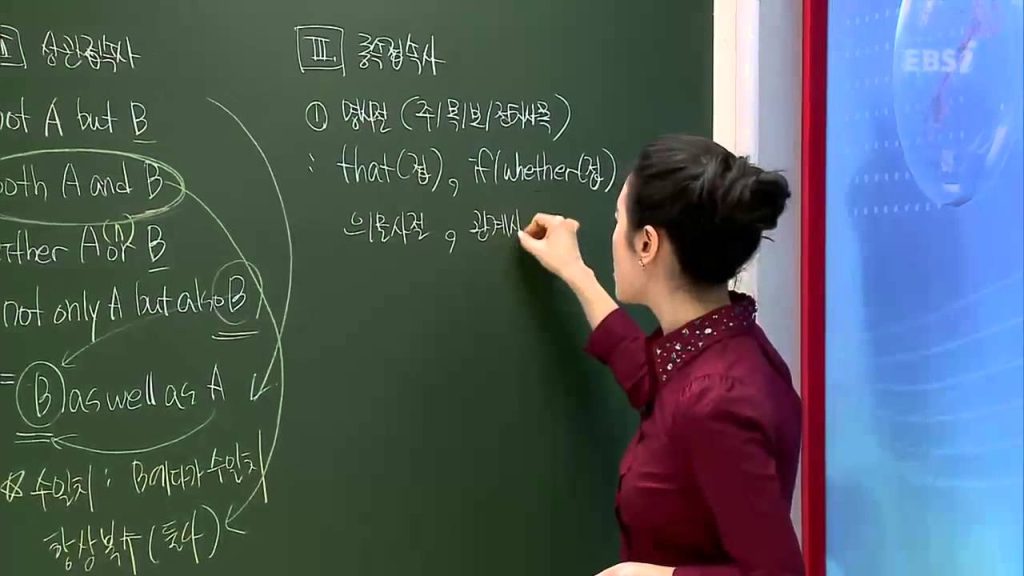 Ⅱ 상관접속사
not A but B
both A and B
either A or B
not only A but also B
= B as well as A
☆ 수일치 : B에다가 수일치
항상복수 (동사)
Ⅲ 종속접속사
① 명사절 (주/목/보/전치사목)
: that(절), if/whether(절),
의문사절, 관계사
EBSi